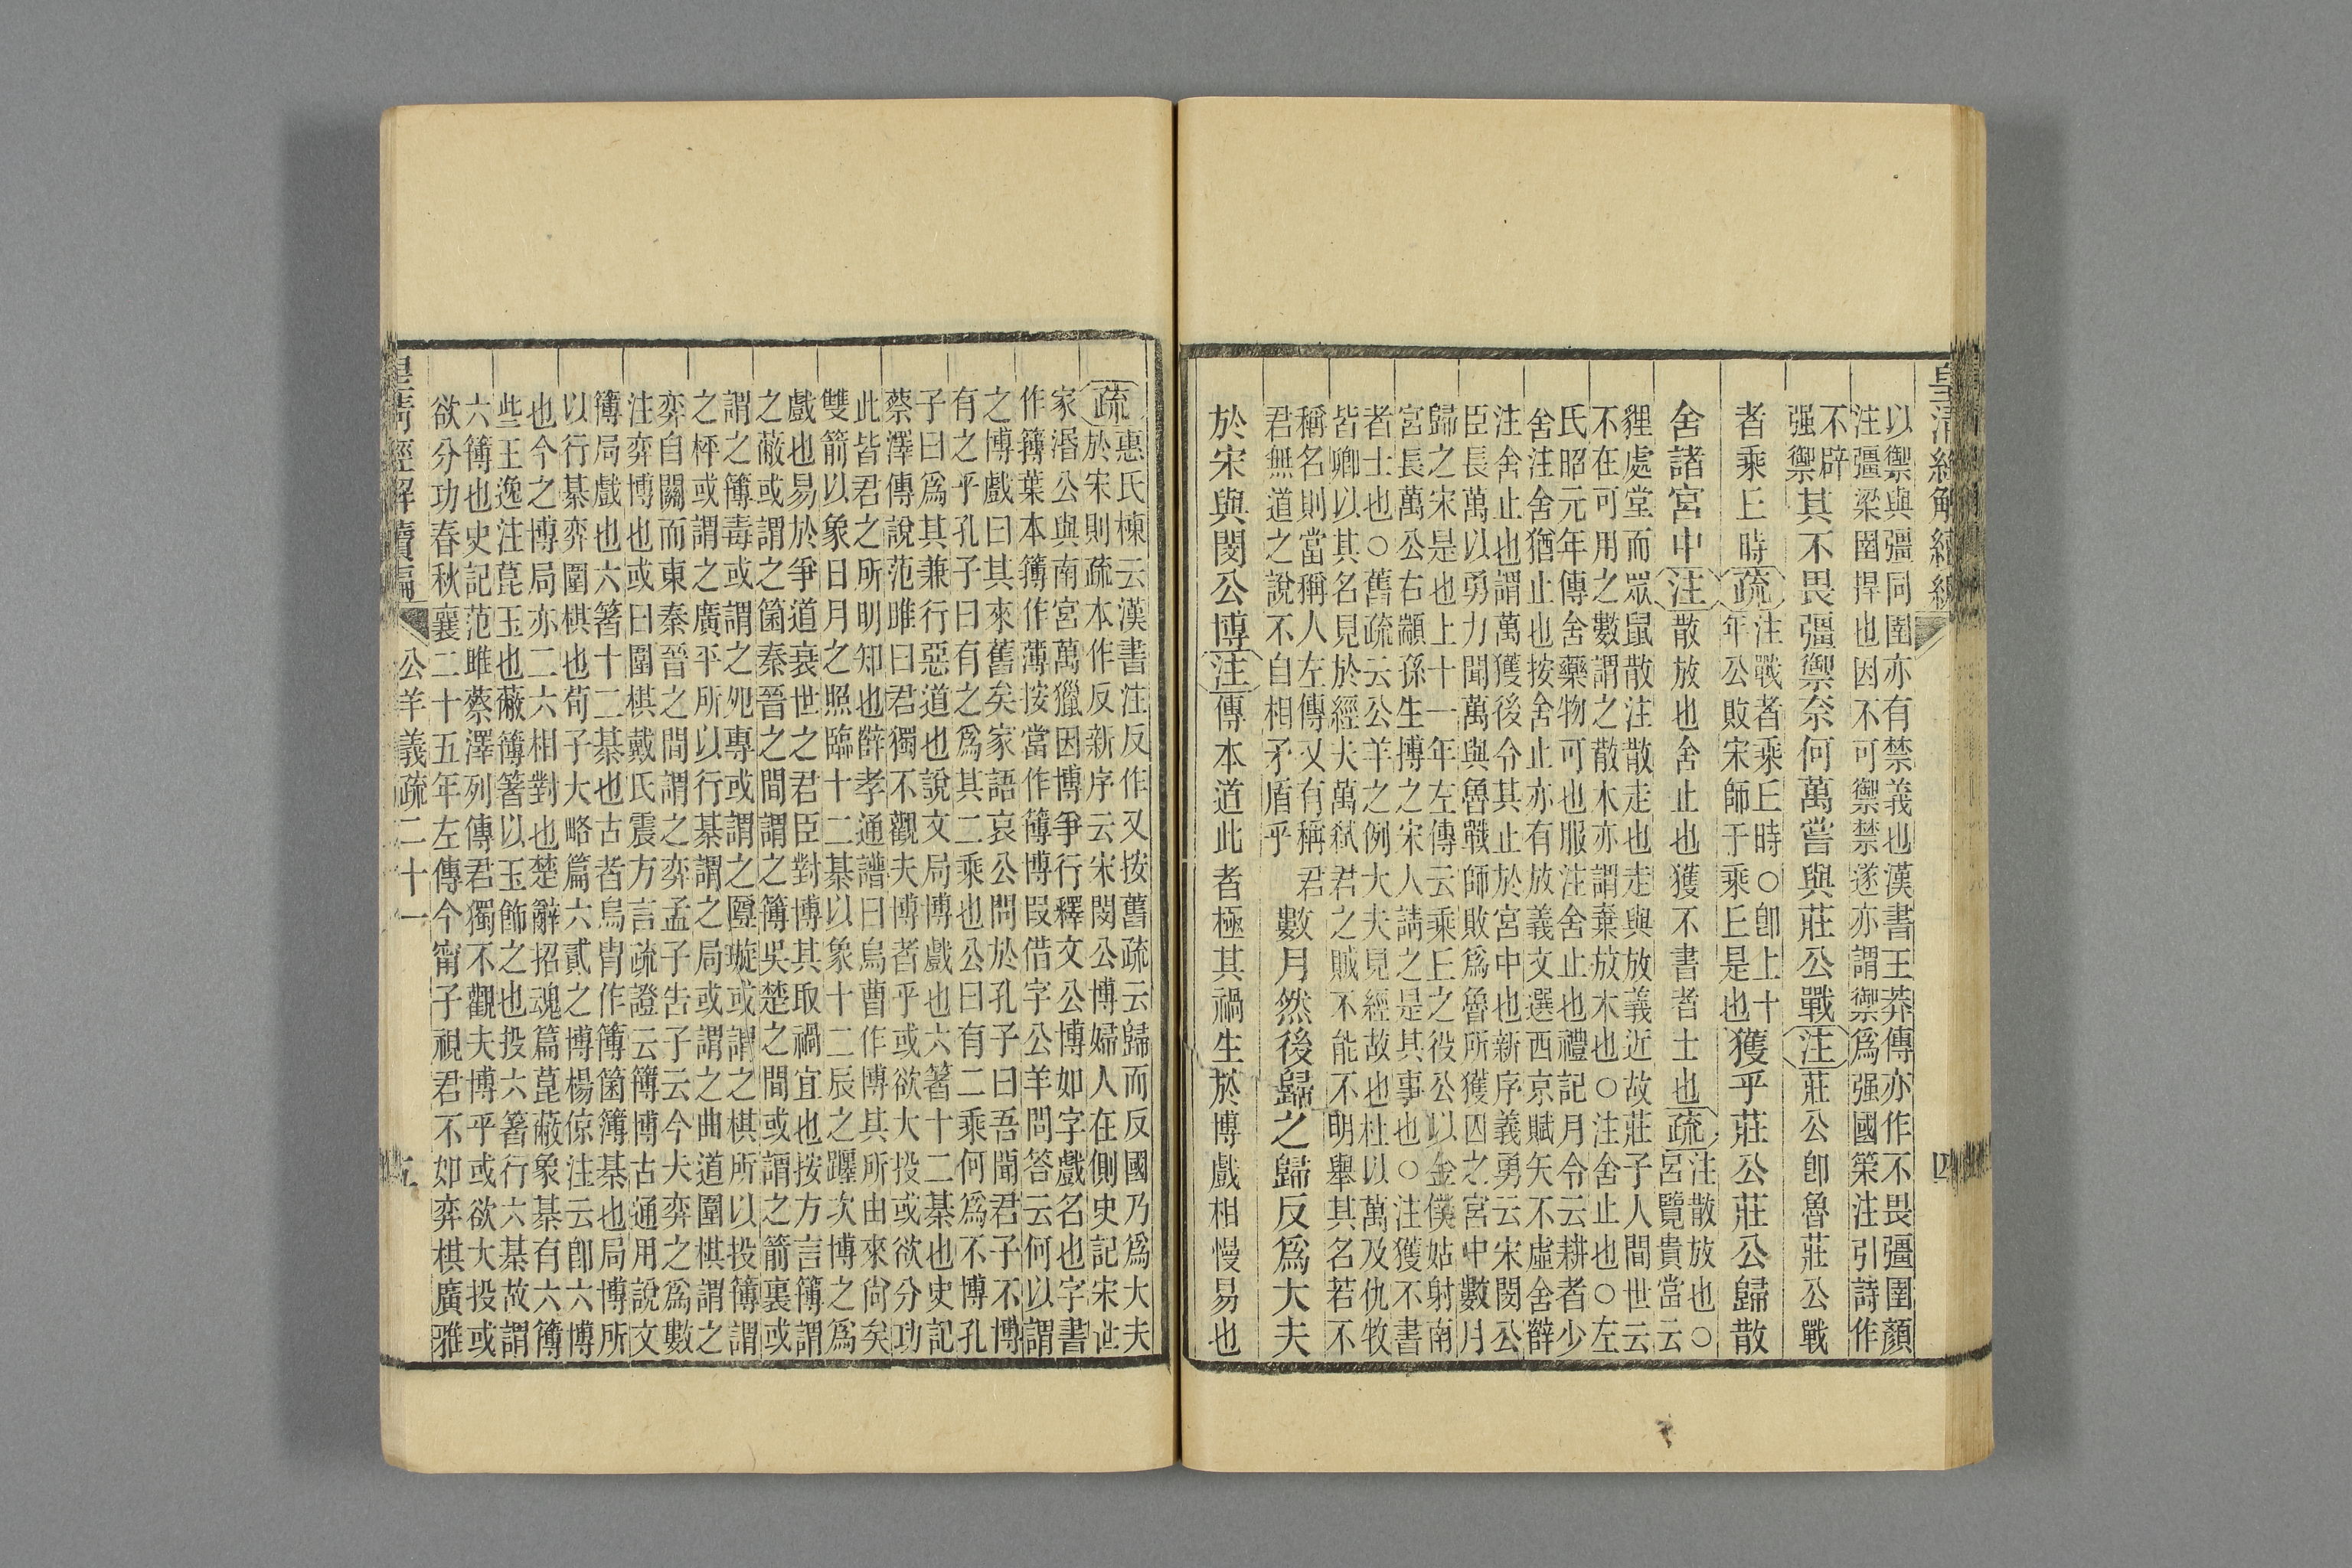 皇清經解續編 四
以禦與彊同圉亦有禁義也漢書王莽傳亦作不畏彊圉顏
注彊梁圉捍也因不可禦禁遂亦謂禦爲强國策注引詩作
不辟
强禦
其不畏彊禦奈何萬嘗與莊公戰注莊公卽魯莊公戰
者乘丘時疏
注戰者乘丘時○卽上十
年公敗宋師于乘丘是也
獲乎莊公莊公歸散
舍諸宮中注散放也舍止也獲不書者士也疏
注散放也○
呂覽貴當云
狸處堂而眾鼠散注散走也走與放義近故莊子人間世云
不在可用之數謂之散木亦謂棄放木也○注舍止也○左
氏昭元年傳舍藥物可也服注舍止也禮記月令云耕者少
舍注舍猶止也按舍止亦有放義文選西京賦矢不虛舍薛
注舍止也謂萬獲後令其止於宮中也新序義勇云宋閔公
臣長萬以勇力聞萬與魯戰師敗爲魯所獲囚之宮中數月
歸之宋是也上十一年左傳云乘丘之役公以金僕姑射南
宮長萬公右歂孫生博之宋人請之是其事也○注獲不書
者士也○舊疏云公羊之例大夫見經故也杜以萬及仇牧
皆卿以其名見於經夫萬弒君之賊不能不明舉其名若不
稱名則當稱人左傳又有稱君
君無道之說不自相矛盾乎
數月然後歸之歸反爲大夫
於宋與閔公博注傳本道此者極其禍生於博戲相慢易也
疏
惠氏棟云漢書注反作又按舊疏云歸而反國乃爲大夫
於宋則疏本作反新序云宋閔公博婦人在側史記宋世
家湣公與南宮萬獵因博爭行釋文公博如字戲名也字書
作簙葉本簙作薄按當作簙博叚借字公羊問答云何以謂
之博戲曰其來舊矣家語哀公問於孔子曰吾聞君子不博
有之乎孔子曰有之爲其二乘也公曰有二乘何爲不博孔
子曰爲其兼行惡道也說文局博戲也六箸十二棊也史記
蔡澤傳說范雎曰君獨不觀夫博者乎或欲大投或欲分功
此皆君之所明知也薛孝通譜曰烏曹作博其所由來尙矣
雙箭以象日月之照臨十二棊以象十二辰之躔次博之爲
戲也易於爭道衰世之君臣對博其取禍宜也按方言簙謂
之蔽或謂之箘秦晉之間謂之簙吳楚之間或謂之箭裏或
謂之簙毒或謂之夗專或謂之匴璇或謂之棋所以投簙謂
之枰或謂之廣平所以行棊謂之局或謂之曲道圍棋謂之
弈自關而東秦晉之間謂之弈孟子告子云今夫弈之爲數
注弈博也或曰圍棋戴氏震方言疏證云簙博古通用說文
簙局戲也六箸十二棊也古者烏冑作簙箘簙棊也局博所
以行棊弈圍棋也荀子大略篇六貳之博楊倞注云卽六博
也今之博局亦二六相對也楚辭招魂篇菎蔽象棊有六簙
些王逸注菎玉也蔽簙箸以玉飾之也投六箸行六棊故謂
六簙也史記范雎蔡澤列傳君獨不觀夫博乎或欲大投或
欲分功春秋襄二十五年左傳今甯子視君不如弈棋廣雅
皇清經解續編 公羊義疏二十一 五